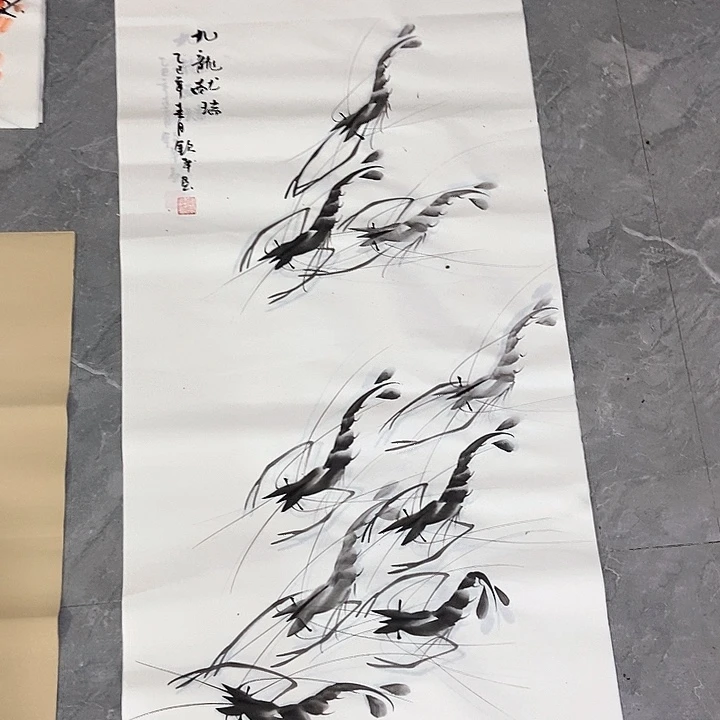 九龍献瑞
乙巳年春月